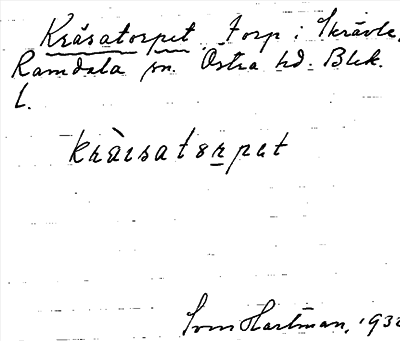 Kråsatorpet. Torp i Skrävle,
Ramdala sn. Östra hd. Blek.
L.
kràısatorpet
Sven Hartman, 193